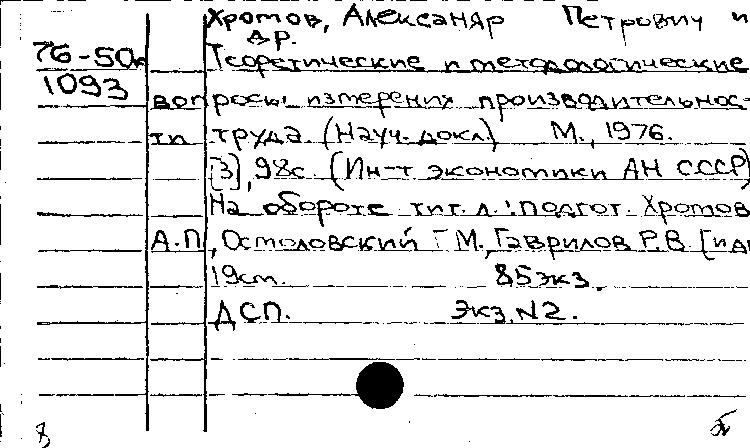 Хромов, Александр Петрович и
др.
76-50к Теоретические и методологические
1093
вопросы измерения производительнос-
ти труда (Науч. докл.) М., 1976.
[3], 98с. (Ин-т экономики АН СССР)
На обороте тит. л.: подгот. Хромов
А.П., Остоловский Г.М., Гаврилов Р.В. [и др
19см. 85экз.
ДСП. Экз. N2.
8